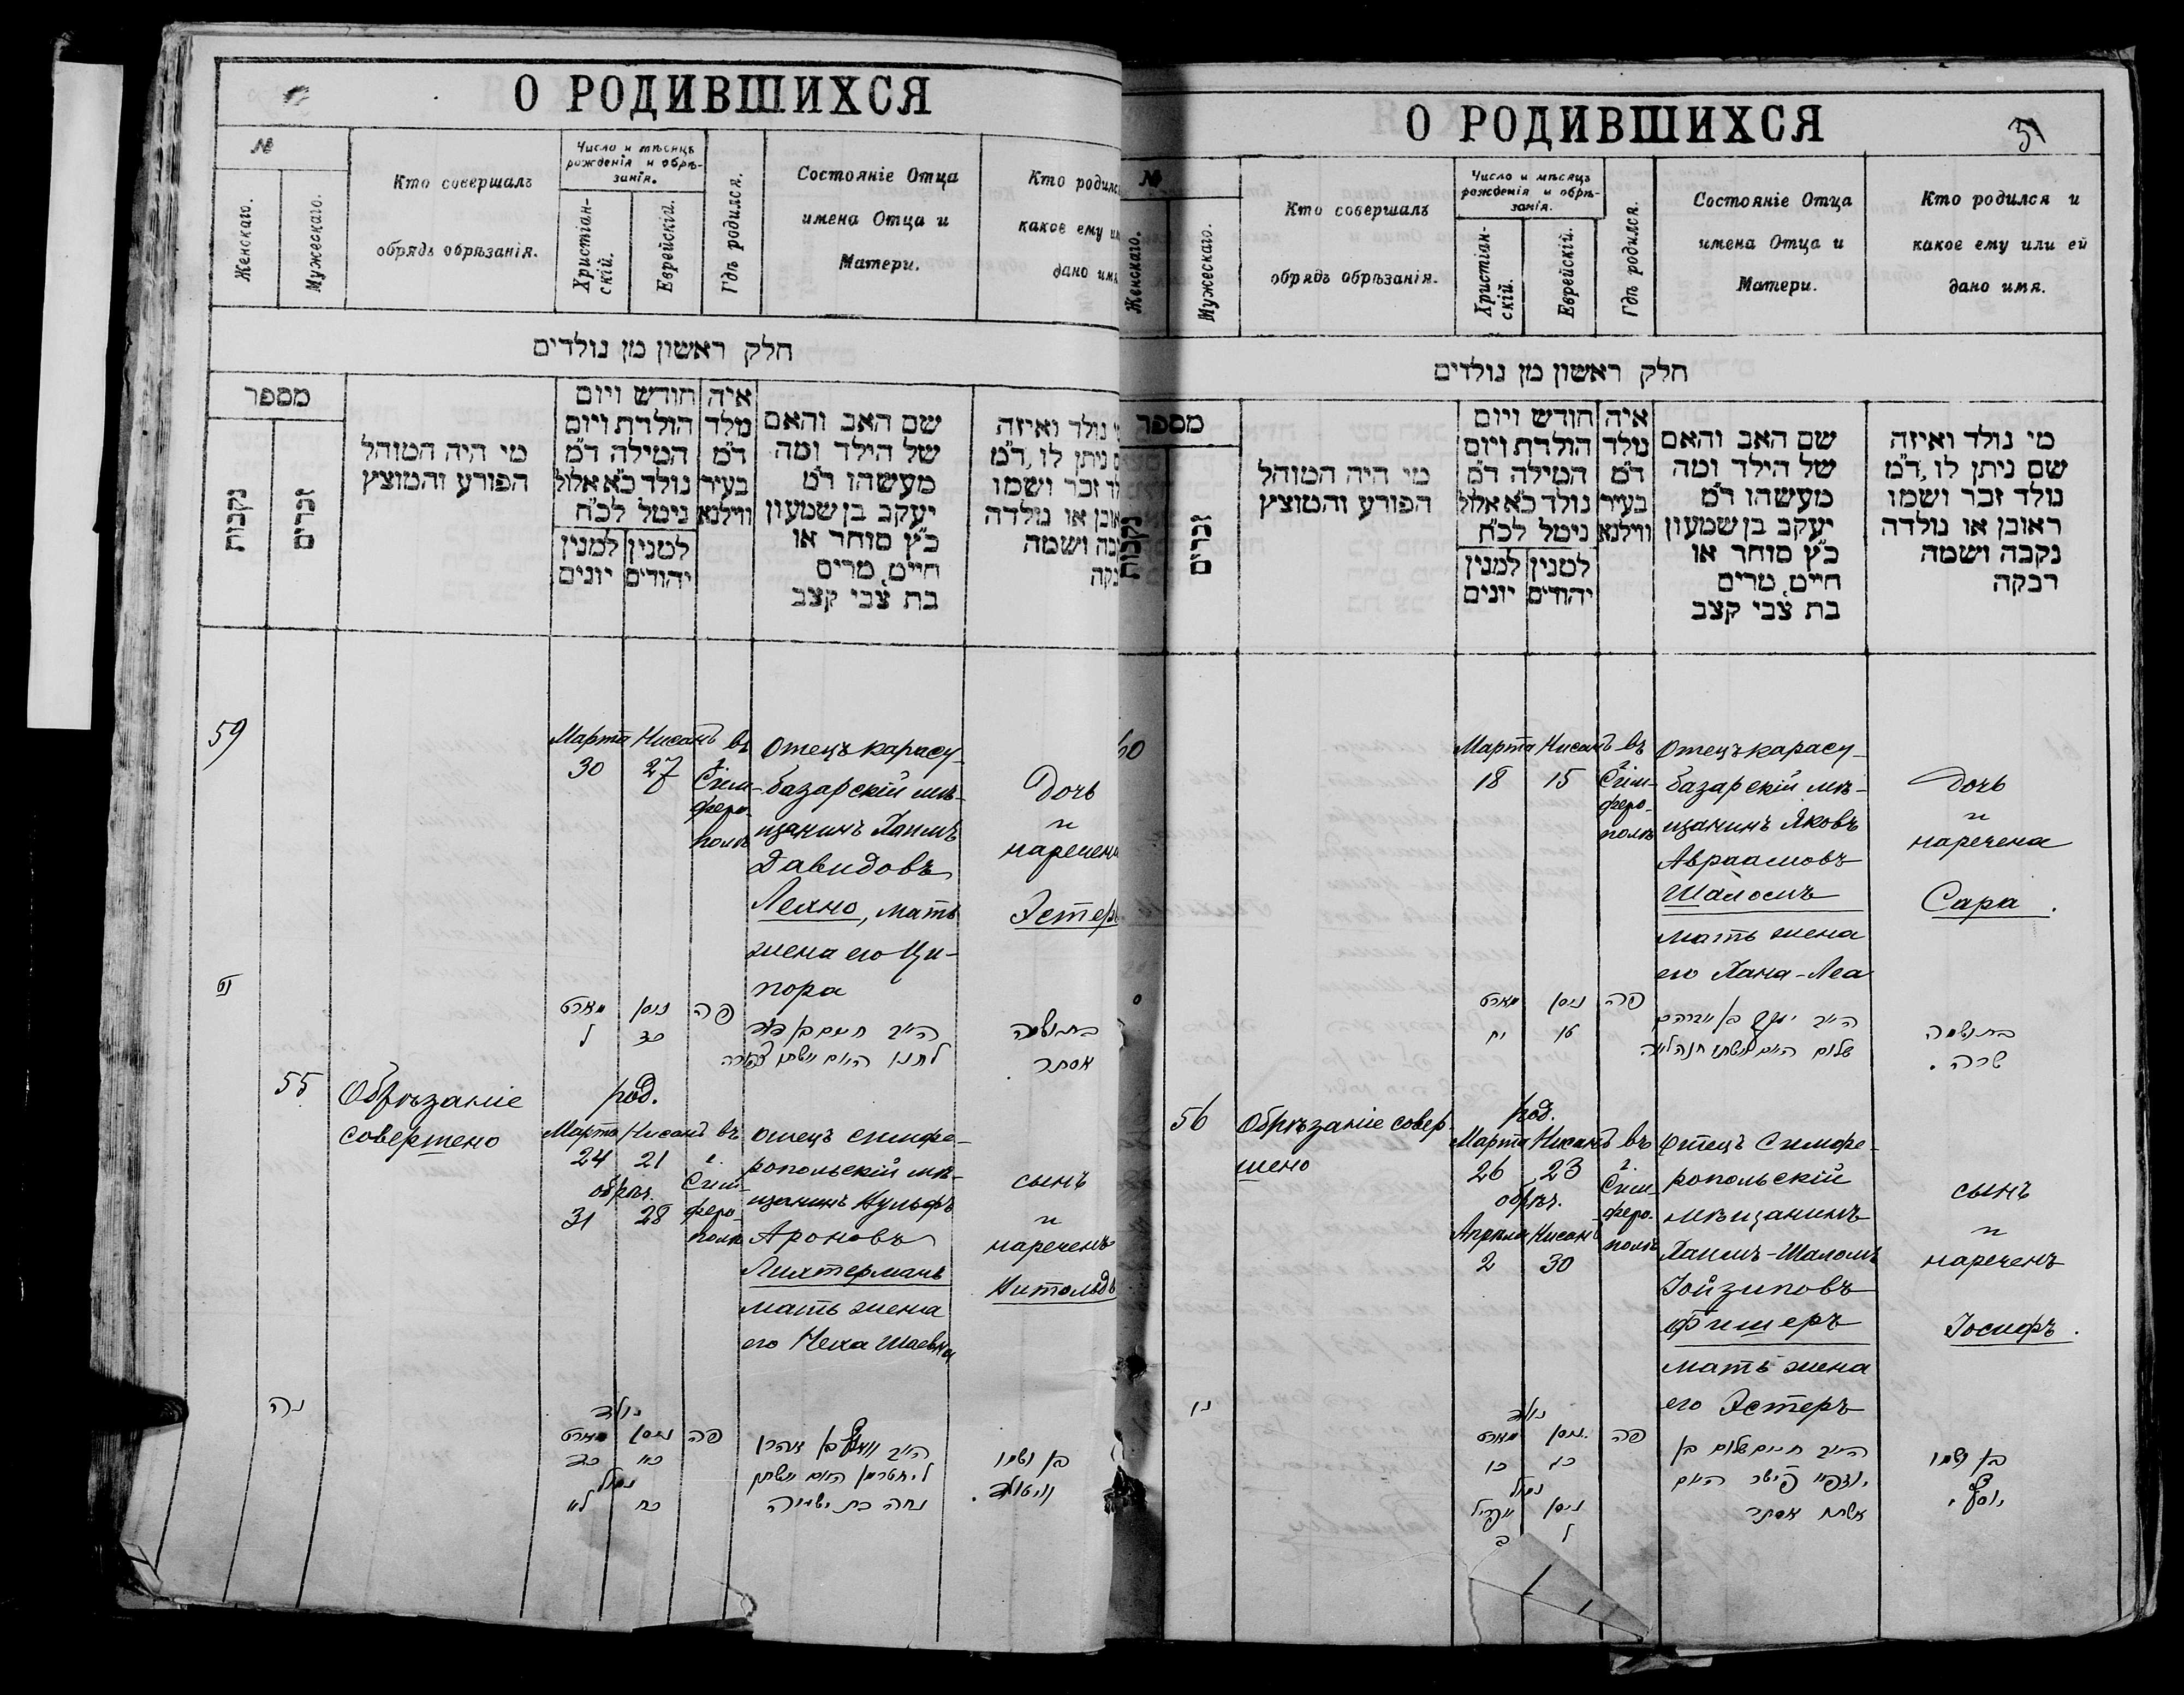 О РОДИВШИХСЯ
№
Женскаго.
Мужескаго.
Кто совершалъ
обрядъ обрѣзанія.
Число и мѣсяцъ
рожденія и обрѣ-
занія.
Христіан-
скій.
Еврейскій.
Гдѣ родился.
Состояніе Отца
имена Отца и
Матери.
Кто родилс
какое ему и
дано имя
חלק ראשון מן נולדים
מספר
נקבות
זכרים
מי היה המוהל
הפורע והמוצץ
חודש ויום
הולדת ויום
המילה ד״מ
נולד כ״א אלול
ניטל לכ״ח
למנין יהודים
למנין יונים
איה
מלד
ד״מ
בעיר
ווילנא
שם האב והאם
של הילד ומה
מעשהו ד״מ
יעקב בן שמעון
כ״ץ סוחר או
חייט, מרים
בת צבי קצב
נולד ואיזה
ניתן לו, ד״מ
זכר ושמו
או נולדה
ושמה
59
Марта 30
Нисанъ 27
въ
г.
Сим-
феро-
полѣ
Отецъ карасу-
базарскій мѣ-
щанинъ Хаимъ
Давидовъ
мать
жена его Ци-
пора
Дочь
и
наречен
Эстер
מארט ל
ניסן
פה
ובת ושמה
אסתר
55
Обрѣзаніе
совершено
род.
Марта 24
Нисанъ 21
обрѣз.
31 28
въ
г.
Сим-
феро-
полѣ
Отецъ симфе-
ропольскій мѣ-
щанинъ Вульфъ
Ароновъ
Лихтерманъ
мать жена
его Неха Шаевна
сынъ
и
нареченъ
Витольдъ
נה
נולד
מארט כד
ניסן כא
נמול
לא כח
פה
בן ושמו
וויטאלד.
О РОДИВШИХСЯ
№
Женскаго.
Мужескаго.
Кто совершалъ
обрядъ обрѣзанія.
Число и мѣсяцъ
рожденія и обрѣ-
занія.
Христіан-
скій.
Еврейскій.
Гдѣ родился.
Состояніе Отца
имена Отца и
Матери.
Кто родился и
какое ему или ей
дано имя.
חלק ראשון מן נולדים
מספר
נקבות
זכרים
מי היה המוהל
הפורע והמוצץ
חודש ויום
הולדת ויום
המילה ד״מ
נולד כ״א אלול
ניטל לכ״ח
למנין יהודים
למנין יונים
איה
נולד
ד״מ
בעיר
ווילנא
שם האב והאם
של הילד ומה
מעשהו ד״מ
יעקב בן שמעון
כ״ץ סוחר או
חייט, מרים
בת צבי קצב
מי נולד ואיזה
שם ניתן לו, ד״מ
נולד זכר ושמו
ראובן או נולדה
נקבה ושמה
רבקה
60
Марта 18
Нисанъ 15
въ
г.
Сим-
феро-
полѣ
Отецъ карасу-
базарскій мѣ-
щанинъ Яковъ
Авраамовъ
Шаломъ
мать жена
его Хана-Леа
Дочь
и
наречена
Сара.
מארט יח
ניסן טו
פה
הא״ב יעקב בן אברהם
שלום האם אשתו חנה לאה
ובת ושמה
שרה.
56
Обрѣзаніе совер-
шено
род.
Марта 26
Нисанъ 23
обрѣз.
Апрѣля 2
Нисанъ 30
въ
г.
Сим-
феро-
полѣ
Отецъ Симфе-
ропольскій
мѣщанинъ
Хаимъ-Шаломъ
Іойзиповъ
Фишеръ
мать жена
его Эстеръ
сынъ
и
нареченъ
Іосифъ.
נו
נולד
מארט כו
ניסן כג
נמול
אפריל ב
ניסן ל
פה
הא״ב חיים שלום בן
פישר האם
אשתו אסתר
בן ושמו
יוסף.